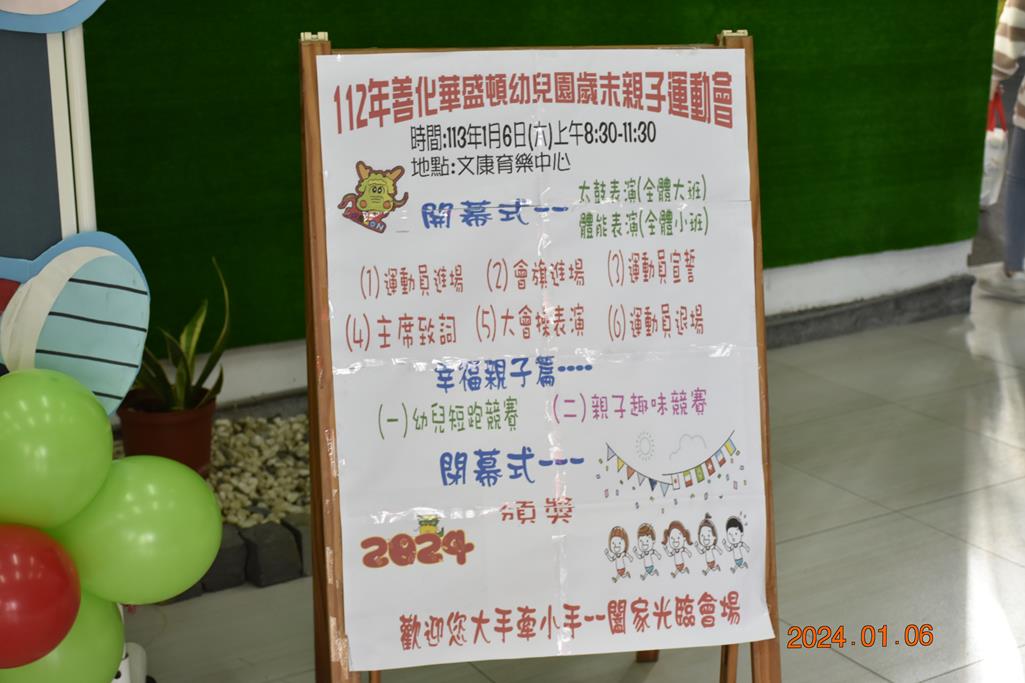 112年善化華盛頓幼兒園歲末親子運動會
時間:113年1月6日(六)上午8:30-11:30
地點:文康育樂中心
開幕式--
太鼓表演(全體大班)
體能表演(全體小班)
(1)運動員進場 (2)會旗進場 (3)運動員宣誓
(4)主席致詞 (5)大會操表演 (6)運動員退場
幸福親子篇----
(一)幼兒短跑競賽 (二)親子趣味競賽
閉幕式---
頒獎
2024
歡迎您大手牽小手--闔家光臨會場
2024.01.06